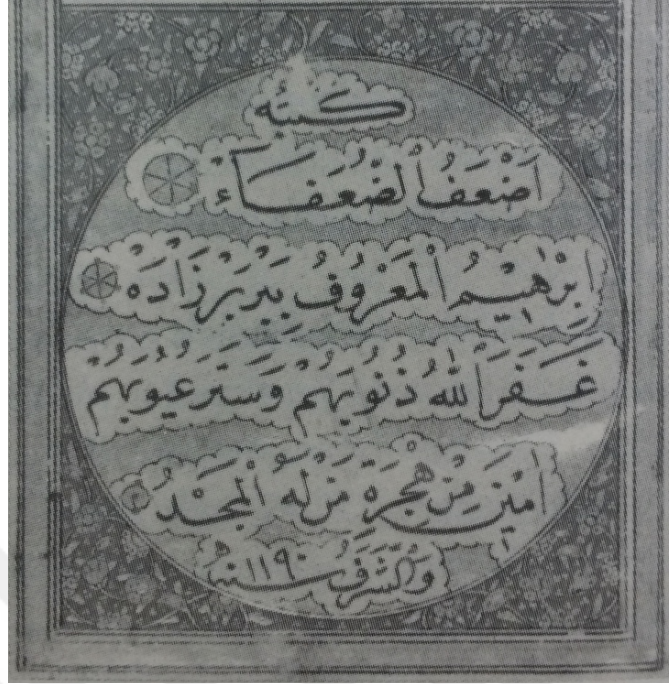 كتبه
اَضْعَفُ الضُّعَفَاءْ
اِبْرٰهِيْمُ الْمَعْرُوفُ بِبَرْبَرْزَادَهْ
غَفَرَ اللهُ ذُنُوبَهُمْ وَسَتَرَ عُيُوبَهُمْ
اٰمِيْنَ مِنْ هِجْرَةِ مَنْ لَهُ الْمَجْدُ
وَالشَّرَفُ سنه ١١٩٠